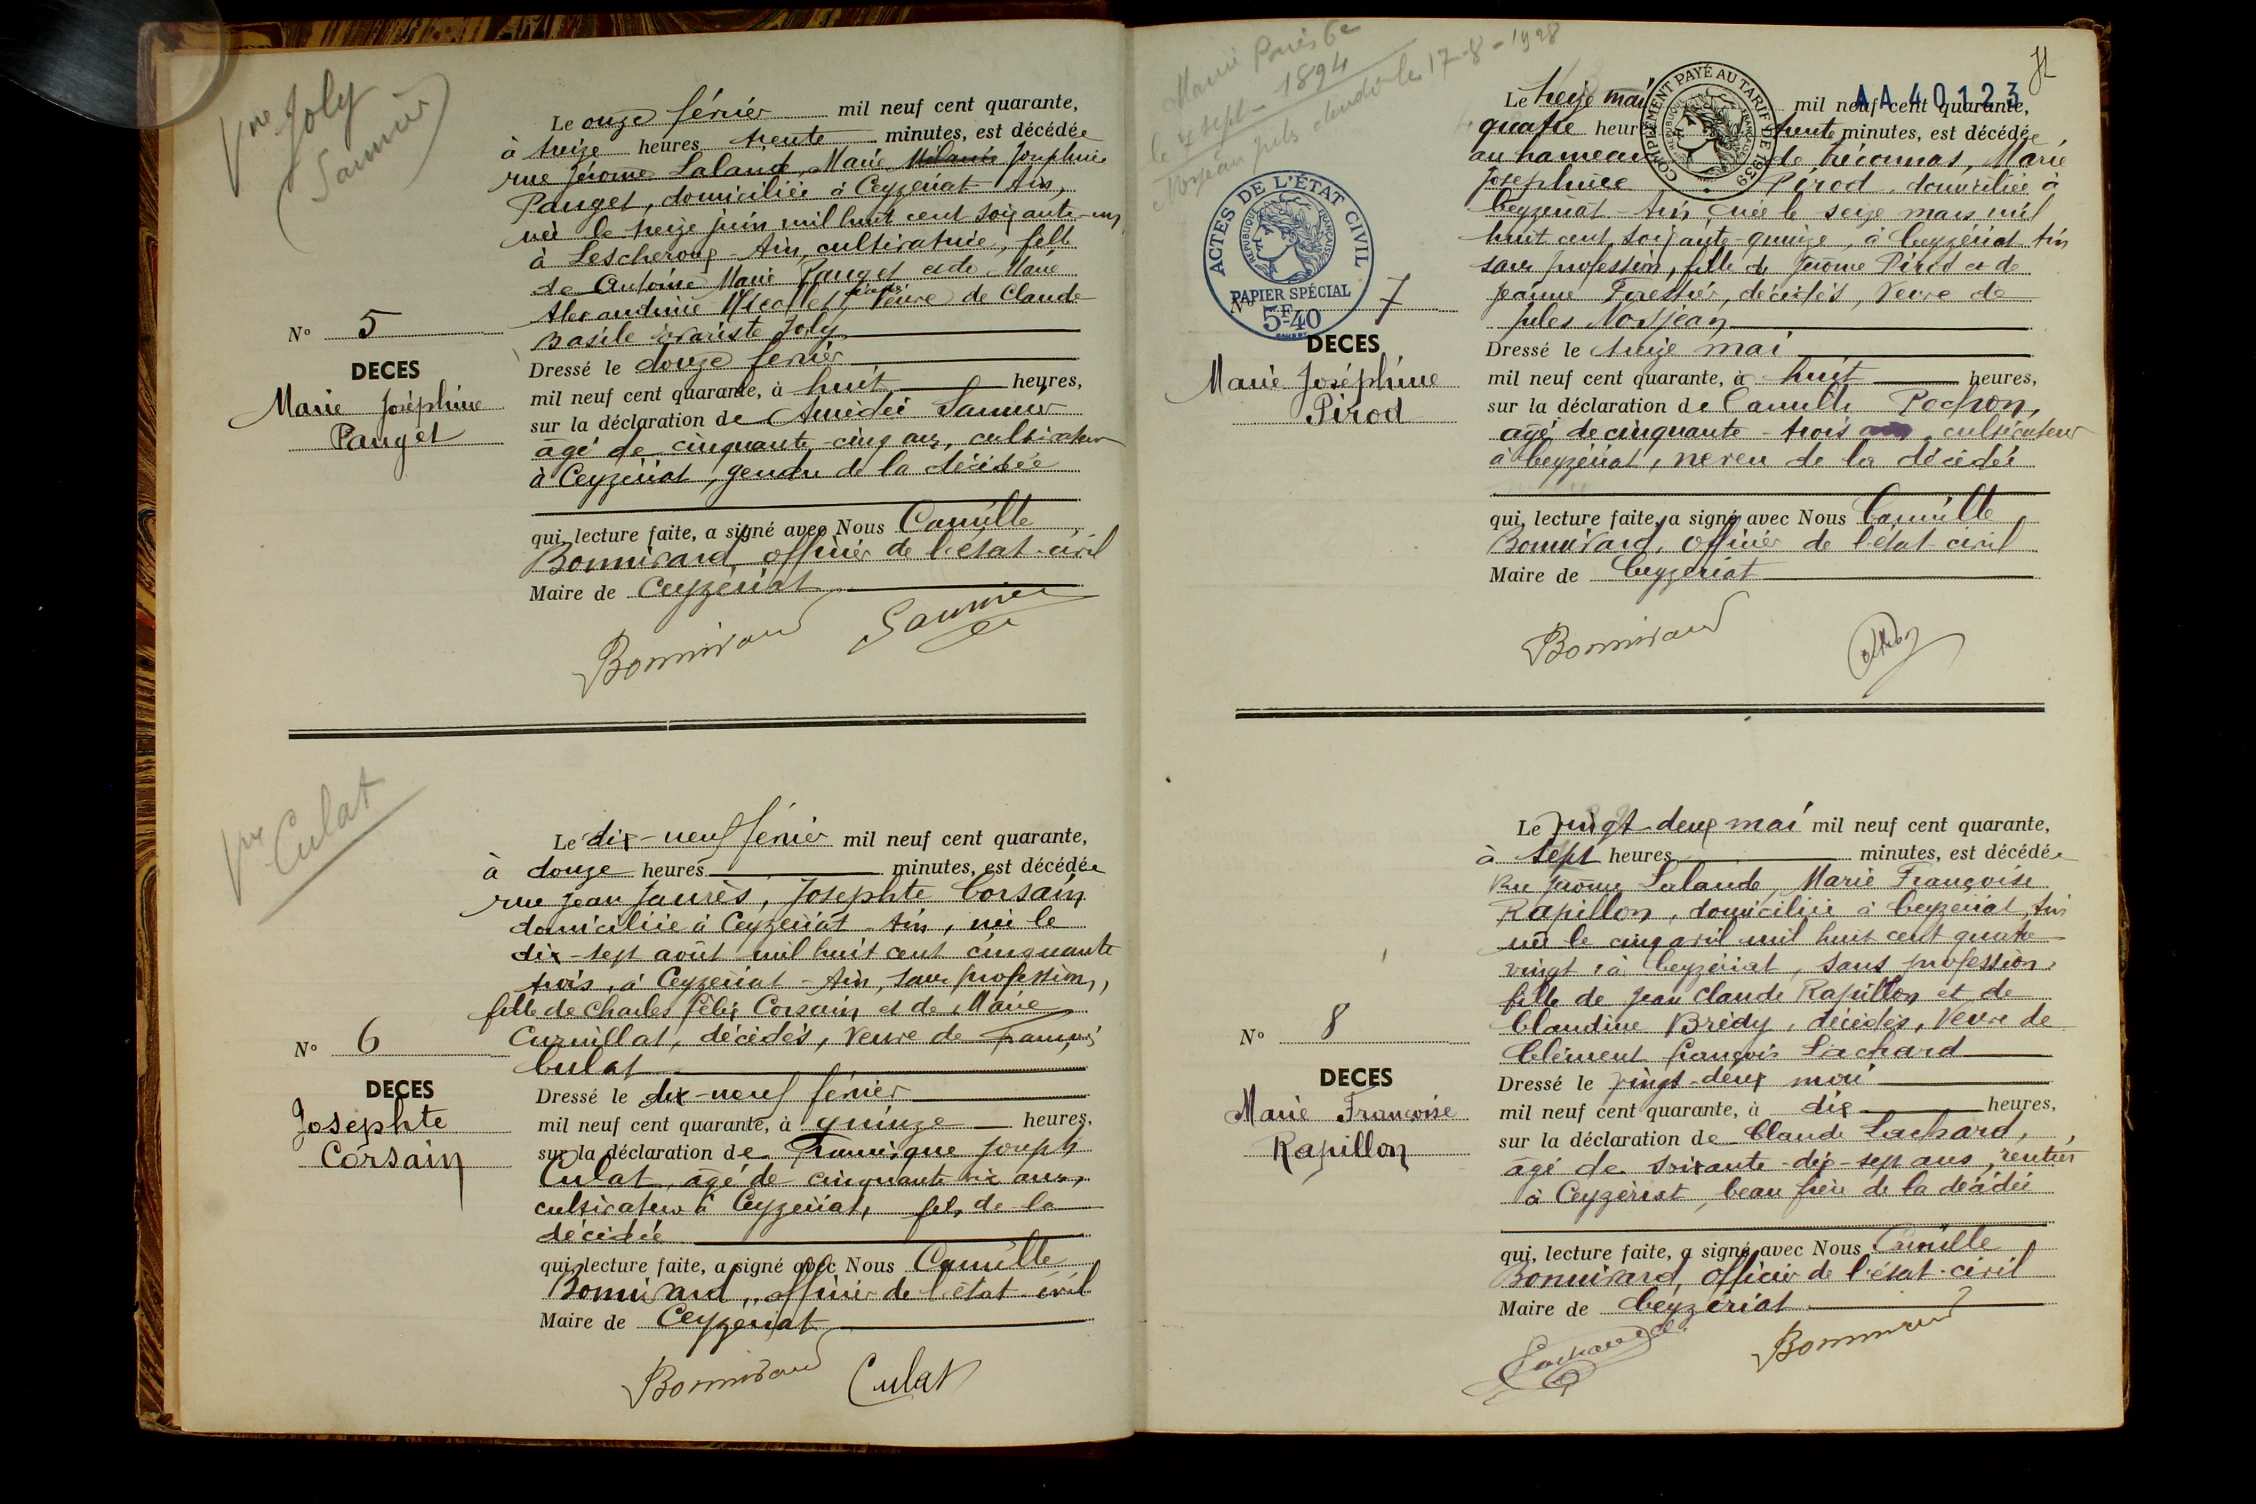 Vve Joly
Saunier
Le onze février mil neuf cent quarante,
à treize heures trente minutes, est décédée
rue Jérome Lalande, Marie Mélanie Joséphine
Pauget, domiciliée à Ceyzériat Ain,
née le treize juin mil huit cent soixante-un
à Lescheroux - Ain, cultivatrice, fille
de Antoine Marie Pauget et de Marie
Alexandrine décédés Veuve de Claude
Basile Evariste Joly
N° 5
DECES
Marie Joséphine
Pauget
Dressé le douze février
mil neuf cent quarante, à huit heures,
sur la déclaration de Amédée Saunier
âgé de cinquante-cinq ans, cultivateur
à Ceyzériat, gendre de la décédée
qui, lecture faite, a signé avec Nous Camille
Bonnivard, officier de l'état-civil
Maire de Ceyzériat
Bonnivard Saunier
Vve Culat
Le dix-neuf février mil neuf cent quarante,
à douze heures minutes, est décédée
rue Jean Jaurès, Josephte Corsain
domiciliée à Ceyzériat - Ain, née le
dix-sept août mil huit cent cinquante
trois, à Ceyzériat - Ain, sans profession,
fille de Charles Félix Corsain et de Marie
Curnillat, décédés, Veuve de François
Culat
N° 6
DECES
Josephte
Corsain
Dressé le dix-neuf février
mil neuf cent quarante, à quinze heures,
sur la déclaration de Joseph
Culat, âgé de cinquante six ans,
cultivateur à Ceyzériat, fils de la
décédée
qui, lecture faite, a signé avec Nous Camille
Bonnivard, officier de l'état-civil
Maire de Ceyzériat
Bonnivard Culat
Marié Paris 6e
le 4 sept - 1894
Morjean Jules décédé le 17-8-1928
AA 40123
COMPLÉMENT PAYÉ AU TARIF DE 1939
RÉPUBLIQUE FRANÇAISE
Le treize mai mil neuf cent quarante,
quatre heur trente minutes, est décédée
au hameau de Marie
Joséphine Pirod, domiciliée à
Ceyzériat - Ain, née le seize mars mil
huit cent soixante-quinze, à Ceyzériat Ain
sans profession, fille de Jérome Pirod et de
Jeanne décédés, Veuve de
Jules Morjean
ACTES DE L'ÉTAT CIVIL
RÉPUBLIQUE FRANÇAISE
PAPIER SPÉCIAL
5F40
N° 7
DECES
Marie Joséphine
Pirod
Dressé le treize mai
mil neuf cent quarante, à huit heures,
sur la déclaration de Camille Pochon,
âgé de cinquante-trois ans, cultivateur
à Ceyzériat, neveu de la décédée
qui, lecture faite, a signé avec Nous Camille
Bonnivard, officier de l'état-civil
Maire de Ceyzériat
Bonnivard
Le vingt-deux mai mil neuf cent quarante,
à sept heures minutes, est décédée
Rue Jérome Lalande, Marie Françoise
Rapillon, domiciliée à Ceyzériat, Ain
née le cinq avril mil huit cent quatre
vingt, à Ceyzériat, sans profession,
fille de Jean Claude Rapillon et de
Claudine Brédy, décédés, Veuve de
Clément François Lachard
N° 8
DECES
Marie Françoise
Rapillon
Dressé le vingt-deux mai
mil neuf cent quarante, à dix heures,
sur la déclaration de Claude Lachard,
âgé de soixante-dix-sept ans, rentier
à Ceyzériat, beau frère de la décédée
qui, lecture faite, a signé avec Nous Camille
Bonnivard, officier de l'état-civil
Maire de Ceyzériat
Lachard Bonnivard